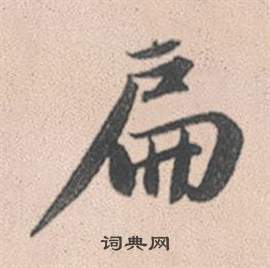 扁
词典网